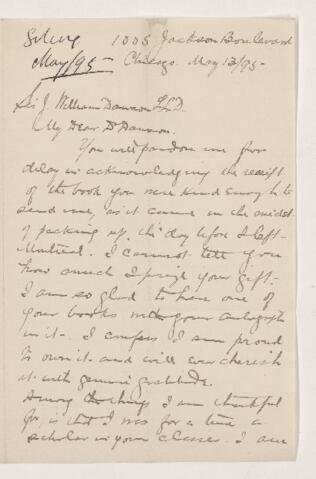 1008 Jackson Boulevard
May/95 - Chicago. May 13/95 -
Sir J. William Dawson LL.D.
My Dear Dr Dawson.
You will pardon me for
delay in acknowledging the receipt
of the book you were kind enough to
send me, as it came in the midst
of packing up, the day before I left
Montreal. I cannot tell you
how much I prize your gift.
I am so glad to have one of
your books with your autograph
in it - I confess I am proud
to own it and will ever cherish
it with genuine gratitude.
Among the things I am thankful
for, is that I was for a time a
scholar in your classes. I am